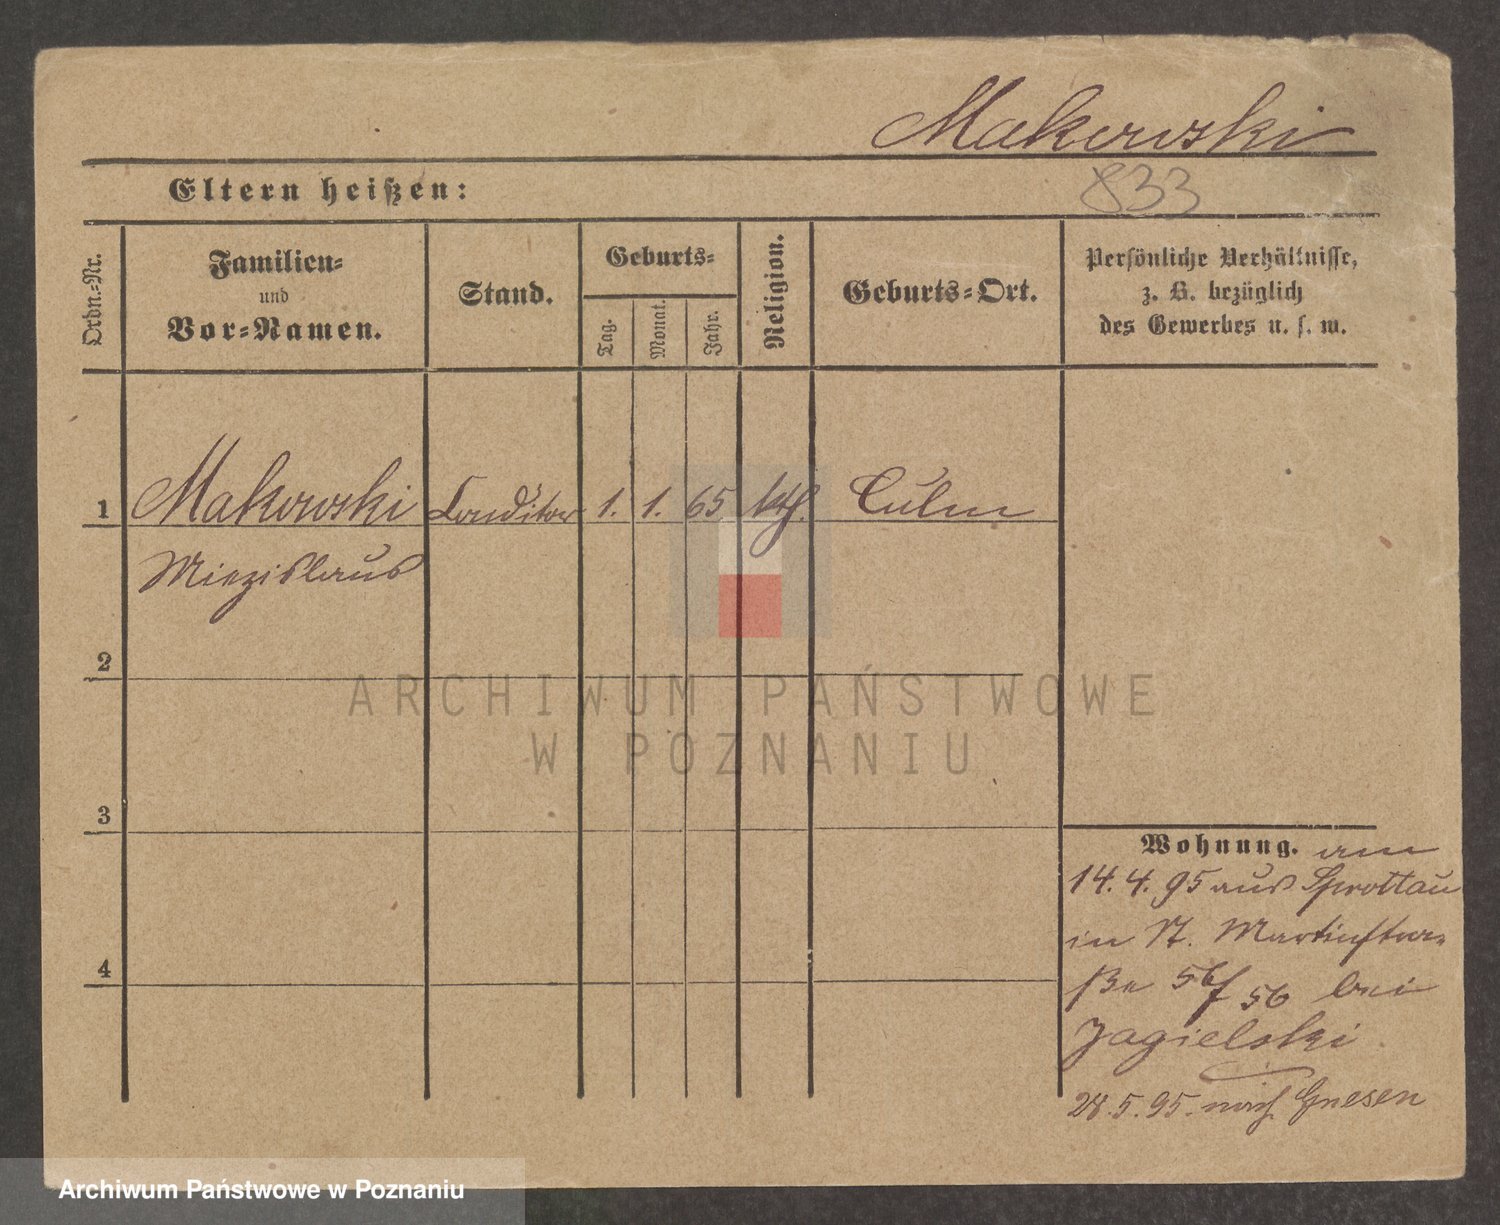 Makowski
Eltern heißen:
833
Ordn.-Nr.
Familien-
und
Vor-Namen.
Stand.
Geburts-
Tag.
Monat.
Jahr.
Religion.
Geburts-Ort.
Persönliche Verhältnisse,
z. B. bezüglich
des Gewerbes u. s. w.
1 Makowski Conditor 1. 1. 65 kth. Culm
Miezislaus
2
3
4
Wohnung. am
14.4.95 aus Sprottau
in St. Martinstra-
ße 56/56 bei
Jagielski
28.5.95. nach Gnesen
ARCHIWUM PAŃSTWOWE
W POZNANIU
Archiwum Państwowe w Poznaniu